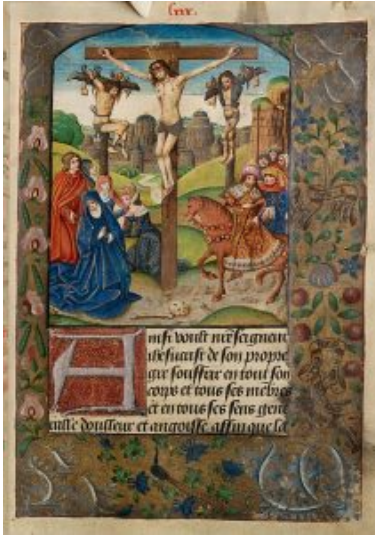 lxx.
Ainsi voult nr̃e seigneur
ihesucrist de son propre
gre souffrir en tout son
corps et tous ses mẽbres
et en tous ses sens gene
ralle doulleur et angoisse affin que la